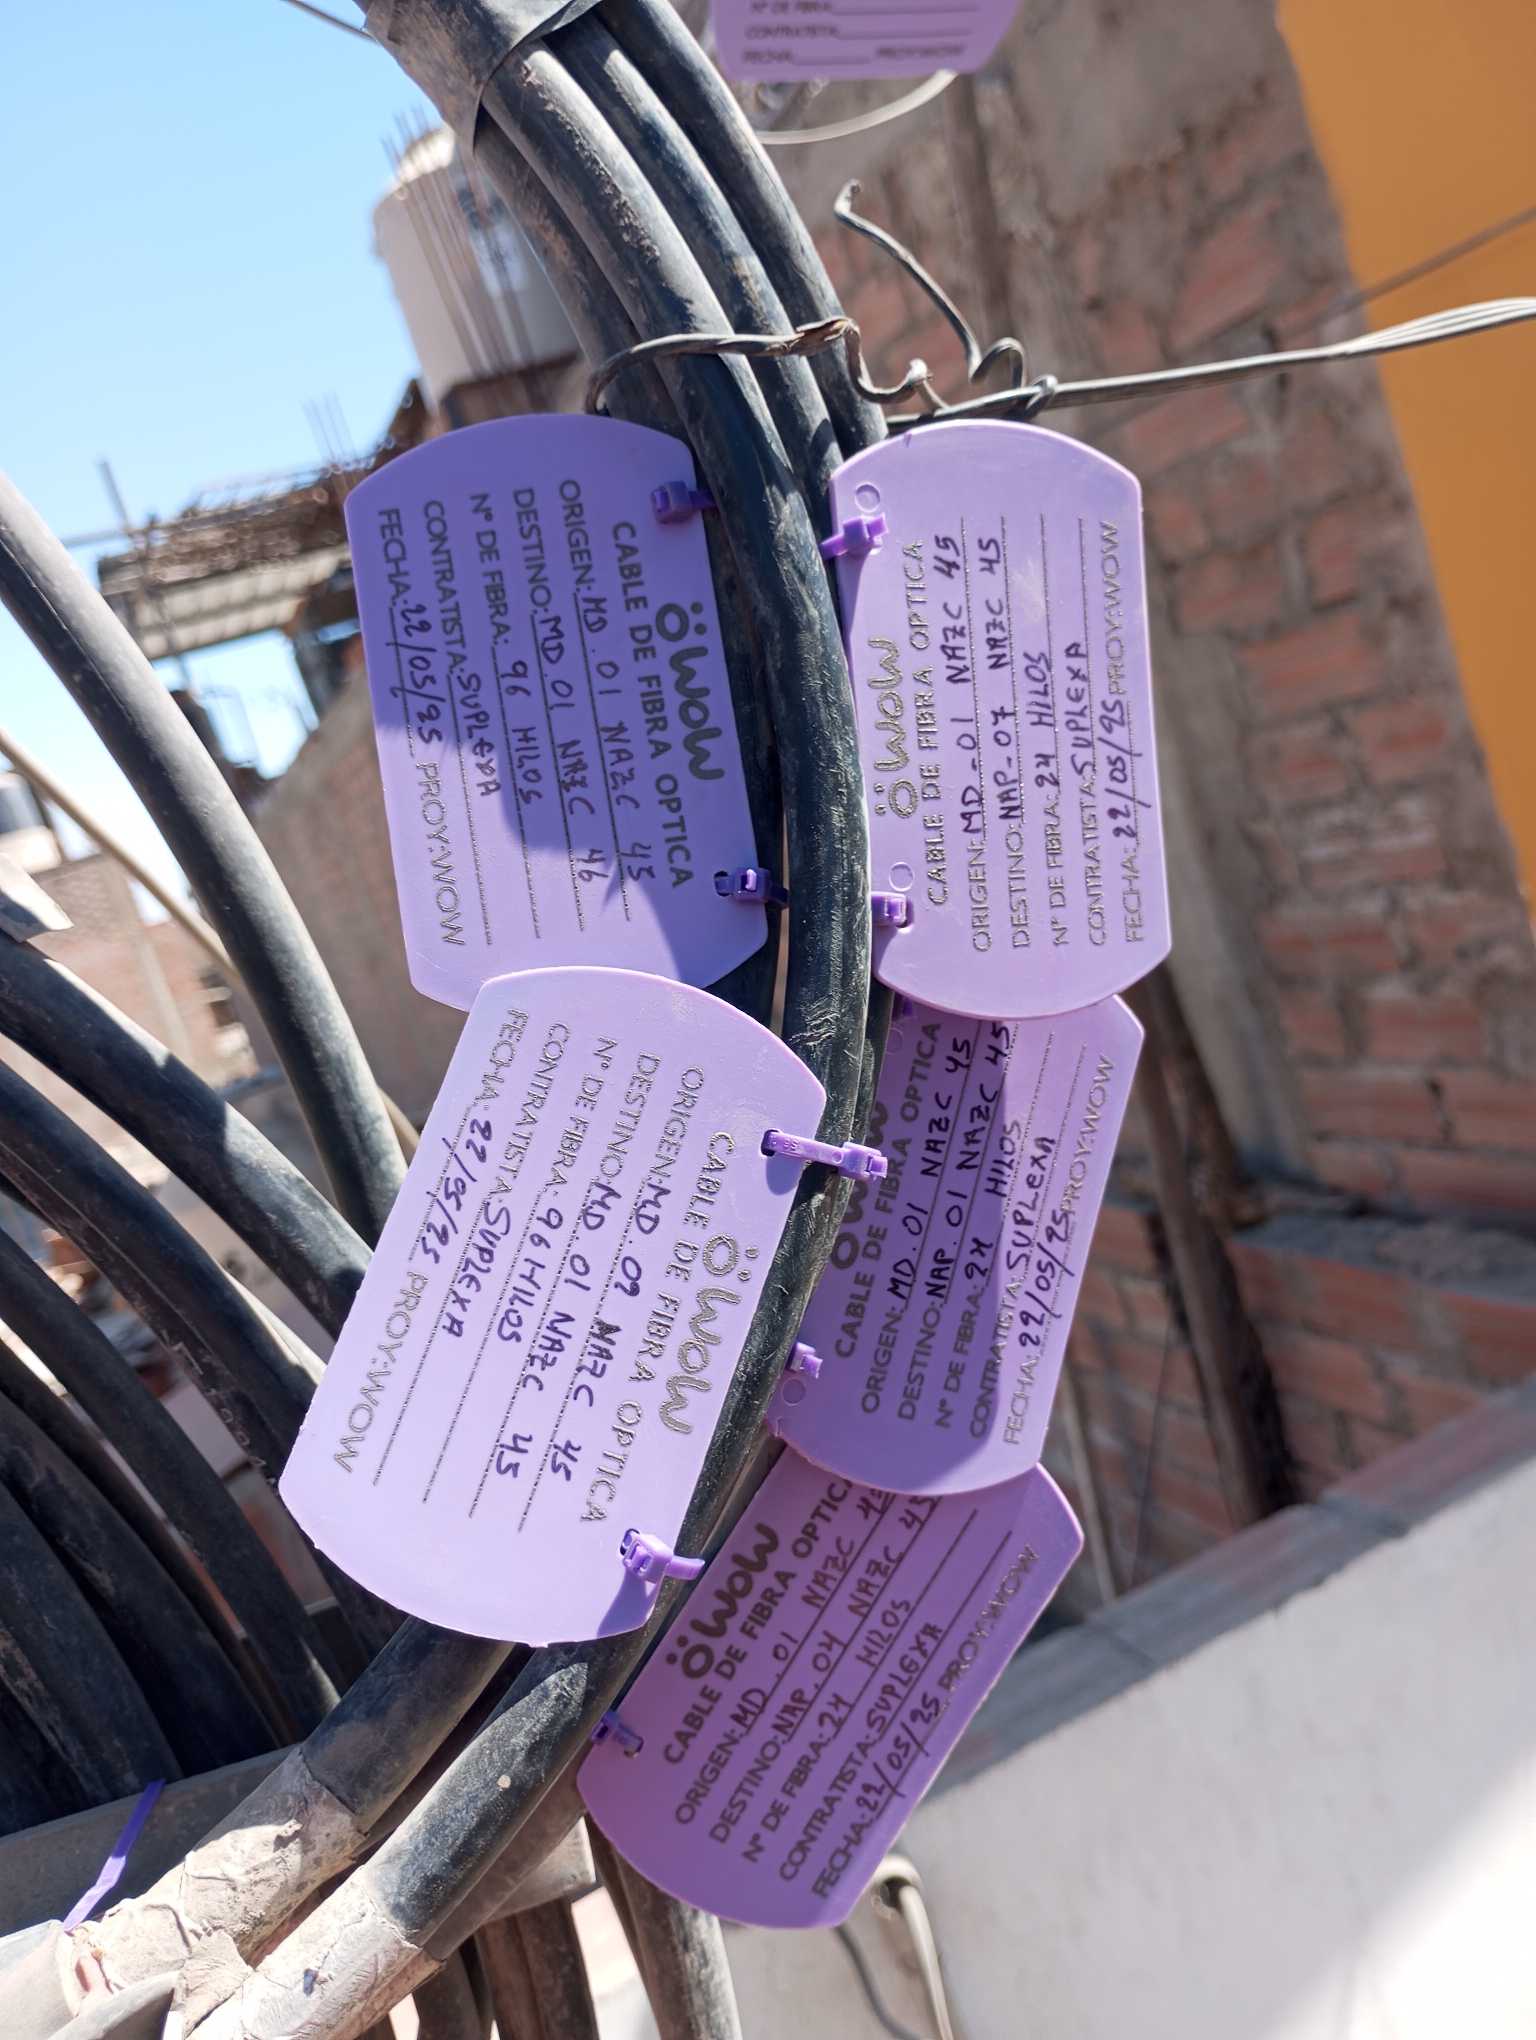 Nº DE FIBRA:
CONTRATISTA:
FECHA: PROY:WOW
ÖWOW
CABLE DE FIBRA OPTICA
ORIGEN: MD . 01 NAZC 45
DESTINO: MD . 01 NAZC 46
Nº DE FIBRA: 96 HILOS
CONTRATISTA: SUPLEXA
FECHA: 22/05/25 PROY:WOW
ÖWOW
CABLE DE FIBRA OPTICA
ORIGEN: MD - 01 NAZC 45
DESTINO: NAP - 07 NAZC 45
Nº DE FIBRA: 24 HILOS
CONTRATISTA: SUPLEXA
FECHA: 22/05/25 PROY:WOW
ÖWOW
CABLE DE FIBRA OPTICA
ORIGEN: MD . 02 NAZC 45
DESTINO: MD . 01 NAZC 45
Nº DE FIBRA: 96 HILOS
CONTRATISTA: SUPLEXA
FECHA: 22/05/25 PROY:WOW
CABLE DE FIBRA OPTICA
ORIGEN: MD . 01 NAZC 45
DESTINO: NAP . 01 NAZC 45
Nº DE FIBRA: 24 HILOS
CONTRATISTA: SUPLEXA
FECHA: 22/05/25 PROY:WOW
ÖWOW
CABLE DE FIBRA OPTIC
ORIGEN: MD . 01 NAZC 45
DESTINO: NAP . 04 NAZC 45
Nº DE FIBRA: 24 HILOS
CONTRATISTA: SUPLEXA
FECHA: 22/05/25 PROY:WOW